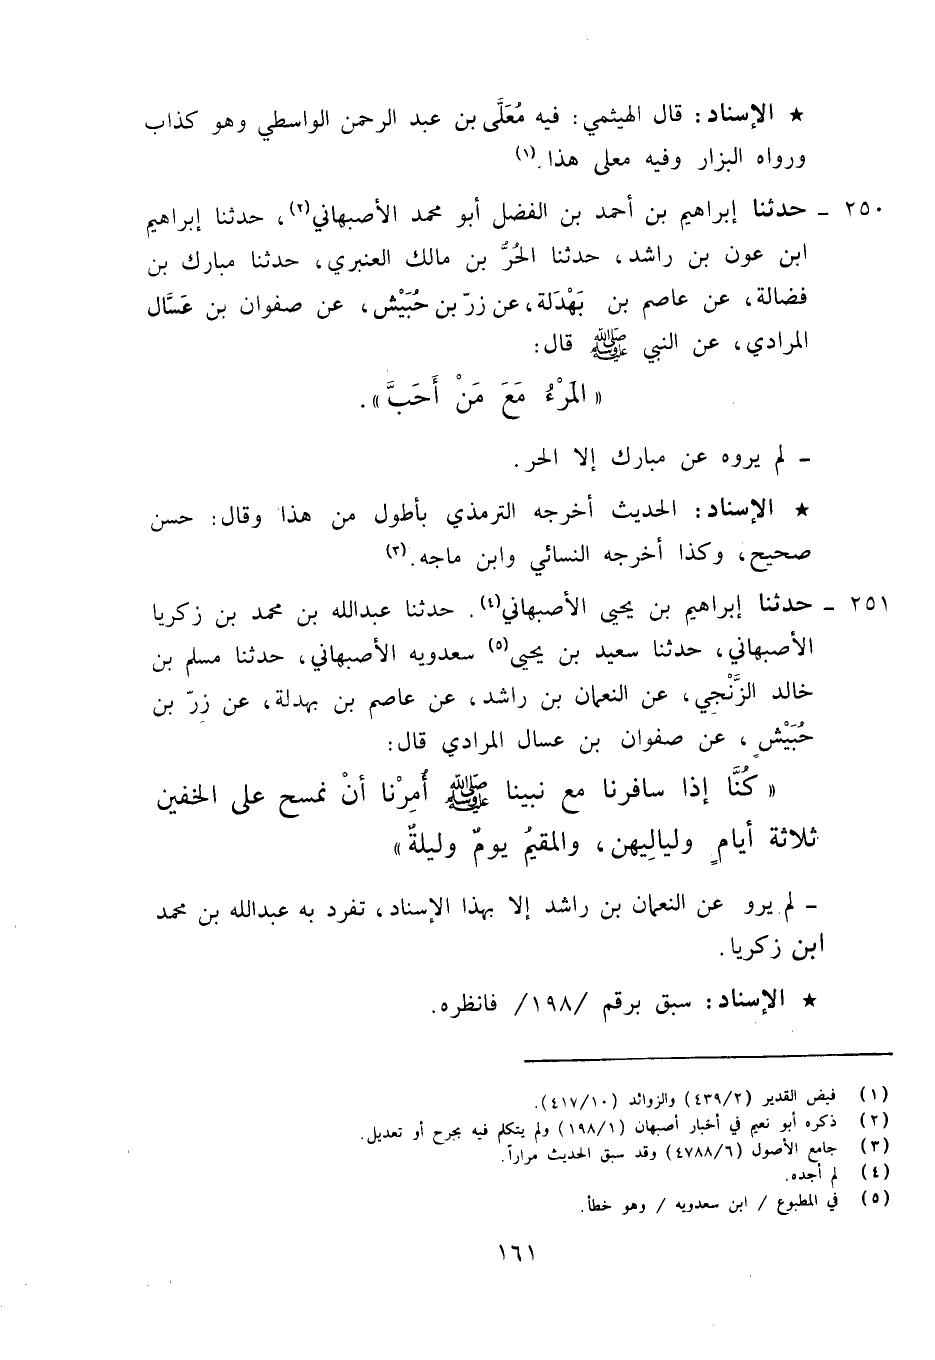 ★ الإسناد: قال الهيثمي: فيه مُعَلَّى بن عبد الرحمن الواسطي وهو كذاب
ورواه البزار وفيه معلى هذا.(١)
٢٥٠ ـ حدثنا إبراهيم بن أحمد بن الفضل أبو محمد الأصبهاني(٢)، حدثنا إبراهيم
ابن عون بن راشد، حدثنا الحُرُّ بن مالك العنبري، حدثنا مبارك بن
فضالة، عن عاصم بن بَهْدَلة، عن زرّ بن حُبَيْش، عن صفوان بن عَسَّال
المرادي، عن النبي ﷺ قال:
« المَرْءُ مَعَ مَنْ أَحَبَّ ».
ـ لم يروه عن مبارك إلا الحر.
★ الإسناد: الحديث أخرجه الترمذي بأطول من هذا وقال: حسن
صحيح، وكذا أخرجه النسائي وابن ماجه.(٣)
٢٥١ ـ حدثنا إبراهيم بن يحيى الأصبهاني(٤). حدثنا عبدالله بن محمد بن زكريا
الأصبهاني، حدثنا سعيد بن يحيى(٥) سعدويه الأصبهاني، حدثنا مسلم بن
خالد الزَّنْجي، عن النعمان بن راشد، عن عاصم بن بهدلة، عن زِرّ بن
حُبَيْشٍ، عن صفوان بن عسال المرادي قال:
« كُنَّا إذا سافرنا مع نبينا ﷺ أُمِرْنا أنْ نمسح على الخفين
ثلاثة أيامٍ ولياليِهن، والمقيمُ يومٌ وليلةٌ »
ـ لم يرو عن النعمان بن راشد إلا بهذا الإسناد، تفرد به عبدالله بن محمد
ابن زكريا.
★ الإسناد: سبق برقم /١٩٨/ فانظره.
(١) فيض القدير (٤٣٩/٢) والزوائد (٤١٧/١٠).
(٢) ذكره أبو نعيم في أخبار أصبهان (١٩٨/١) ولم يتكلم فيه بجرح أو تعديل.
(٣) جامع الأصول (٤٧٨٨/٦) وقد سبق الحديث مراراً.
(٤) لم أجده.
(٥) في المطبوع / ابن سعدويه / وهو خطأ.
١٦١